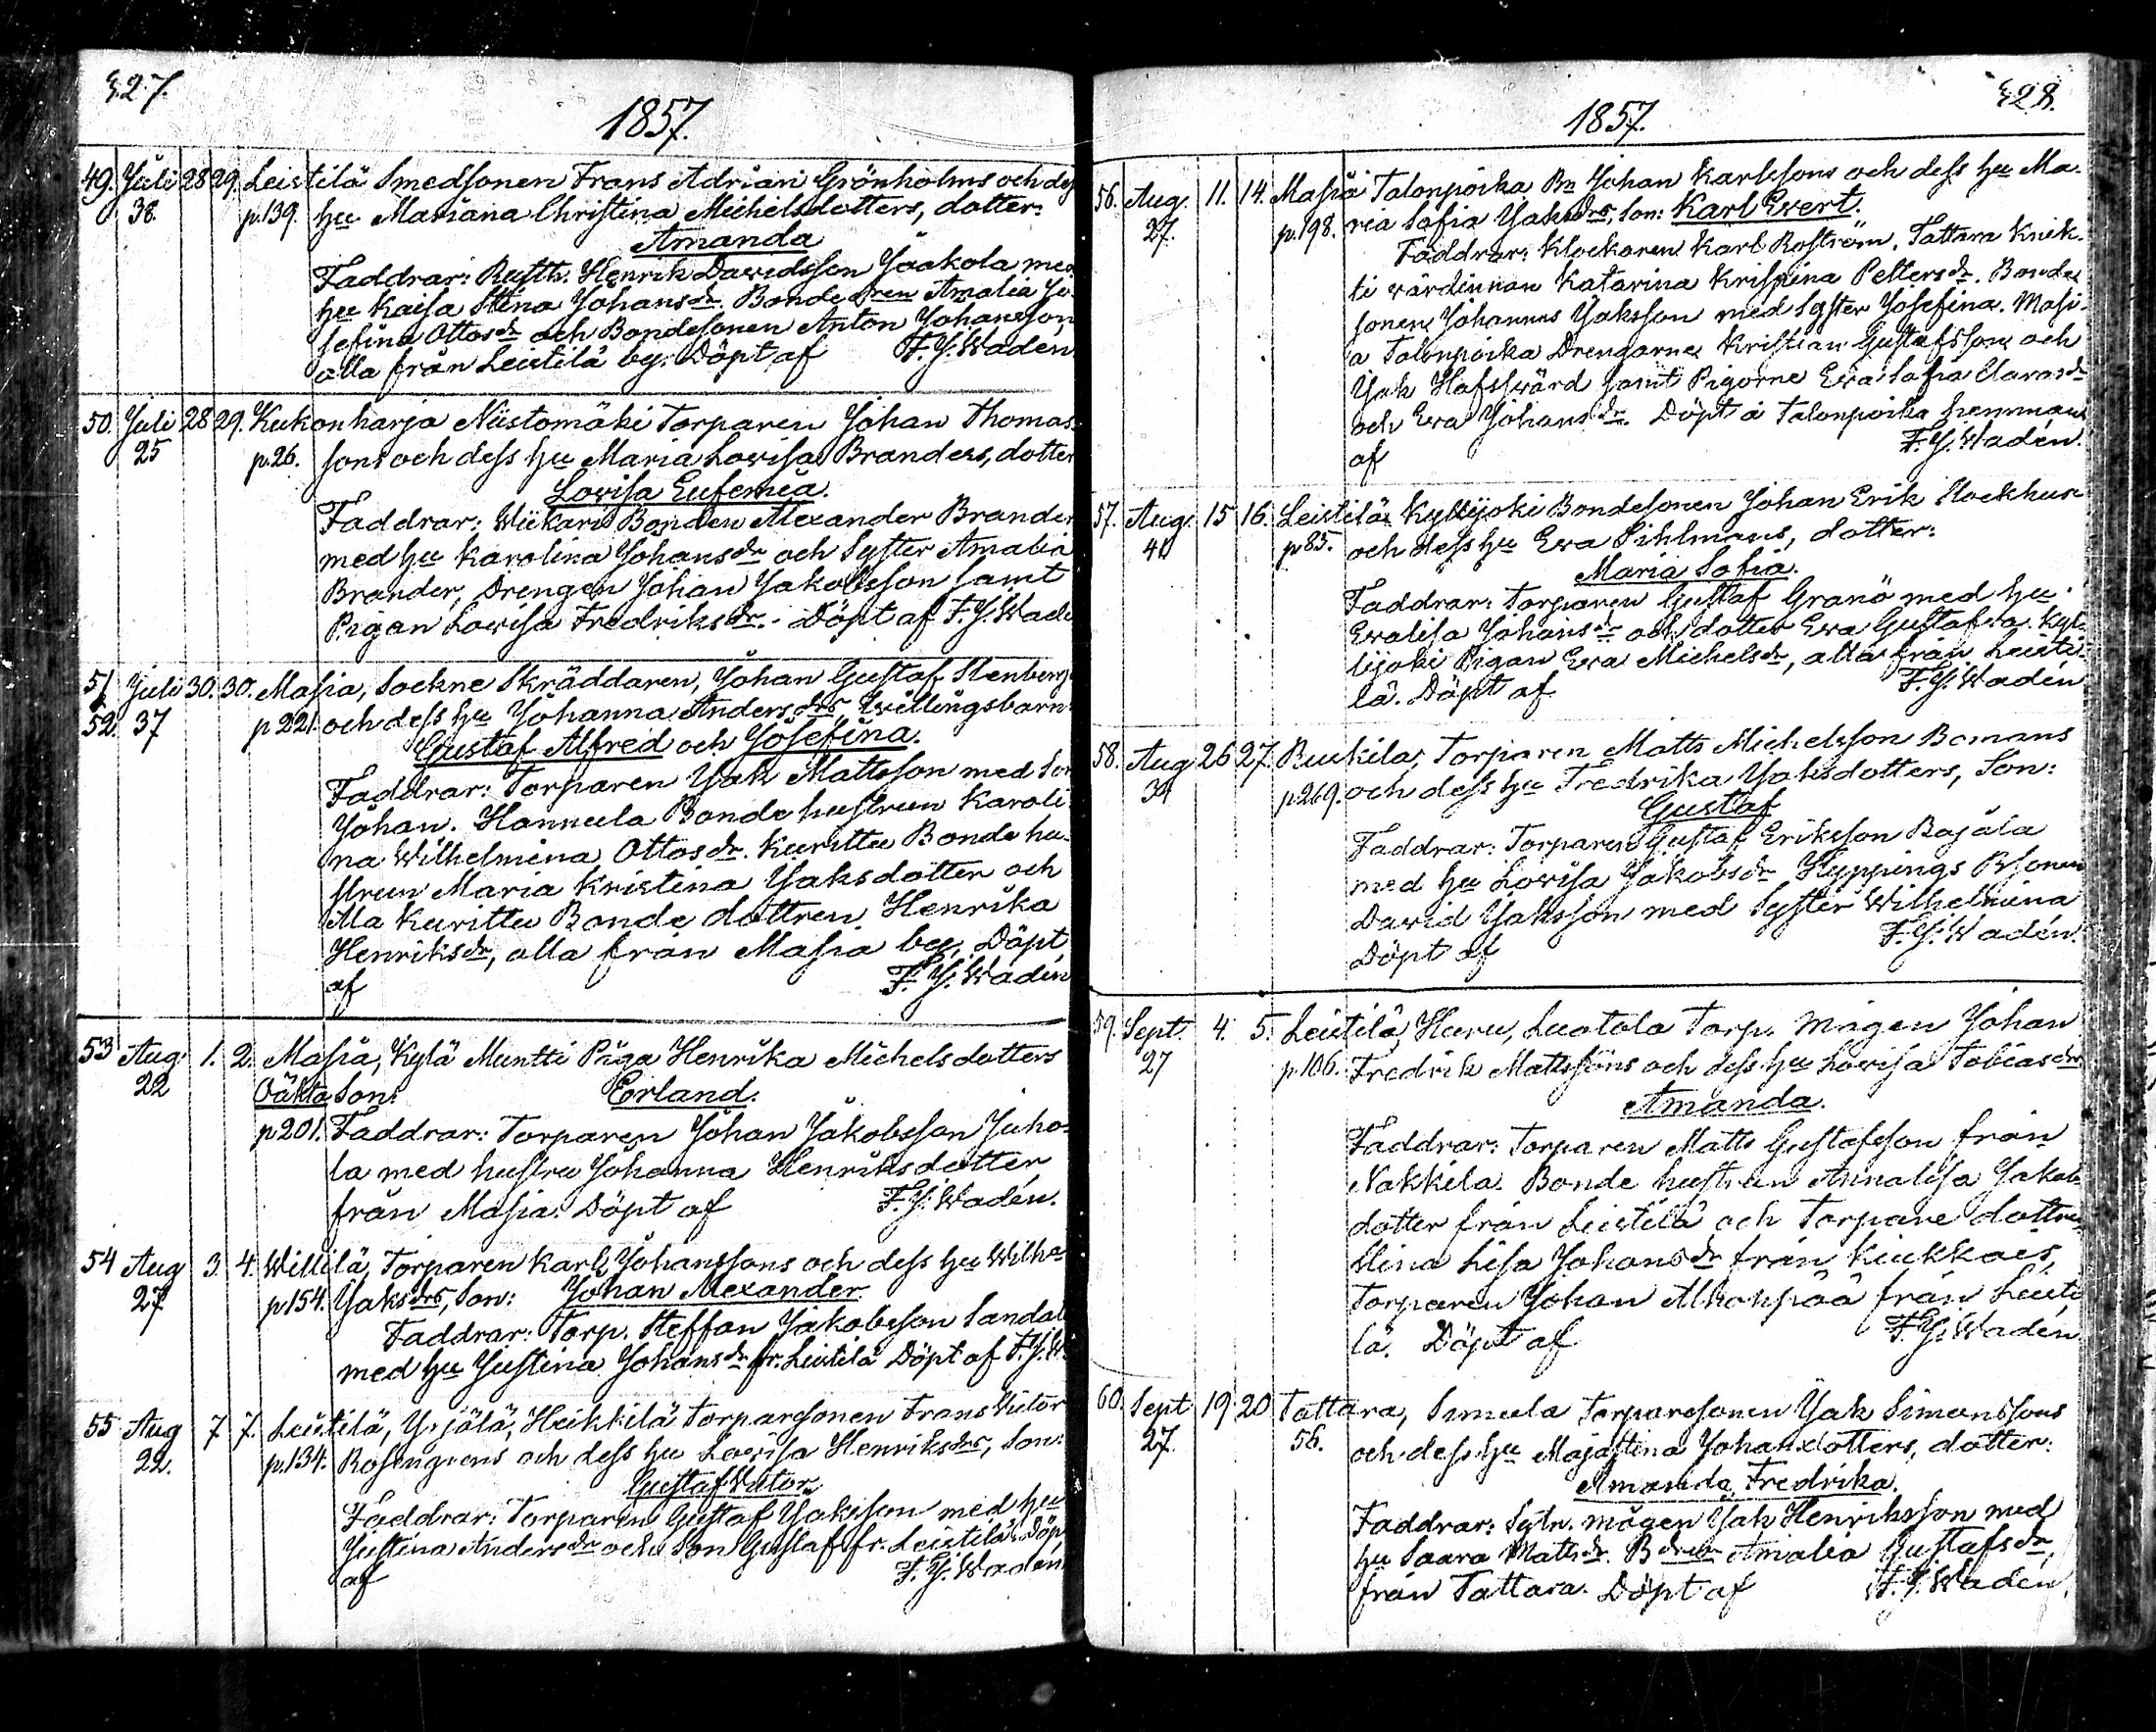 427.
1857.
49. Juli 28 29. Leistilä Smedsonen Frans Adrian Grönholms och dess
38 p.139. hu Mariana Christina Michelsdotters, dotter:
Amanda
Faddrar: Rusth. Henrik Davidsson Jaakola med
hu Kaisa Stina Johansdr. Bondedren Amalia Jo-
sefina Ottosdr och Bondesonen Anton Johansson
alla från Leistilä by. Döpt af F. J. Wadén
50. Juli 28 29. Kukonharja Niistomäki Torparen Johan Thomas-
25 p.26. sons och dess hu Maria Lovisa Branders, dotter
Lovisa Eufemia.
Faddrar: Wiikari Bonden Alexander Brander
med hu Karolina Johansdr och Syster Amalia
Brander, Drengen Johan Jakobsson samt
Pigan Lovisa Fredriksdr. - Döpt af F. J. Wade
51 Juli 30. 30. Masia, Sockne Skräddaren, Johan Gustaf Stenbergs
52. 37 p 221. och dess hu Johanna Andersdrs, Twillingsbarn
Gustaf Alfred och Josefina.
Faddrar: Torparen Jak Mattsson med Son
Johan. Hannula Bonde hustrun Karoli-
na Wilhelmina Ottosdr. Kurittu Bonde hu-
strun Maria Kristina Jaksdotter och
Ala Kurittu Bonde dottren Henrika
Henriksdr, alla från Masia by. Döpt
af F. J. Wadén
53 Aug. 1. 2. Masia, Kylä Muntti Piga Henrika Michelsdotters
22 Oäkta Son: Erland.
p 201. Faddrar: Torparen Johan Jakobsson Juho-
la med hustru Johanna Henriksdotter
från Masia. Döpt af F. J. Wadén.
54 Aug 3. 4. Willilä, Torparen Karl Johanssons och dess hu Wilha
27 p 154. Jaksdrs, Son: Johan Alexander
Faddrar: Torp. Steffan Jakobsson Sandal
med hu Justina Johansdr fr. Leistilä Döpt af F. J. W
55 Aug 7 7. Leistilä, Yrjölä, Heikkilä Torparesonen Frans Victor
22. p.134. Rosengrens och dess hu Lovisa Henriksdrs, Son:
Gustaf Victor
Faddrar: Torparen Gustaf Jaksson med hu
Justina Andersdr och Son Gustaf fr. Leistilä. Döp
af F. J. Wadén
428.
1857.
56. Aug. 11. 14. Masia Talonpoika Bn Johan Karlssons och dess hu Ma-
27. p.198. ria Sofia Jaksdrs, Son: Karl Evert.
Faddrar: Klockaren Karl Roström. Tattara Knik-
ti värdinnan Katarina Kristina Pettersdr. Bonde
sonen Johannes Jaksson med Syster Josefina. Masi-
a Talonpoika Drengarne Kristian Gustafsson och
Jak Hafsvärd samt Pigorne Eva Sofia
och Eva Johansdr. Döpt å Talonpoika hemman
af F. J. Wadén.
57. Aug. 15 16. Leistilä Kyllijoki Bondesonen Johan Erik Stockhus
41 p 85. och dess hu Eva Pihlmans, dotter:
Maria Sofia.
Faddrar: Torparen Gustaf Granö med hu
Evalisa Johansdr och dotter Eva Gustafva. Kyl-
lijoki Pigan Eva Michelsdr, alla från Leisti-
lä. Döpt af F. J. Wadén
58. Aug 26 27. Ruskila, Torparen Matts Michelsson Bomans
34 p.269. och dess hu Fredrika Jaksdotters, Son:
Gustaf
Faddrar: Torparen Gustaf Eriksson Bajala
med hu Lovisa Jakobsdr Hyppings Bsonen
David Jaksson med Syster Wilhelmina
Döpt af F. J. Wadén.
59. Sept. 4. 5. Leistilä, Haru, Luotola Torp. mågen Johan
27 p.106. Fredrik Mattssons och dess hu Lovisa Tobiasdrs
Amanda.
Faddrar: Torparen Matts Gustafsson från
Nakkila. Bonde hustrun Annalisa Jakobs
dotter från Leistilä och Torpare dottren
Stina Lisa Johansdr från Kiukkais,
Torparen Johan Alhonpää från Leisti
lä. Döpt af F. J. Wadén
60. Sept 19 20 Tattara, Simula Torparesonen Jak Simonssons
27. 56. och dess hu Majastina Johansdotters, dotter:
Amanda Fredrika.
Faddrar: Sytn. mågen Jak Henriksson med
hu Saara Mattsdr. Bdren Amalia Gustafsdr
från Tattara. Döpt af F. J. Wadén,